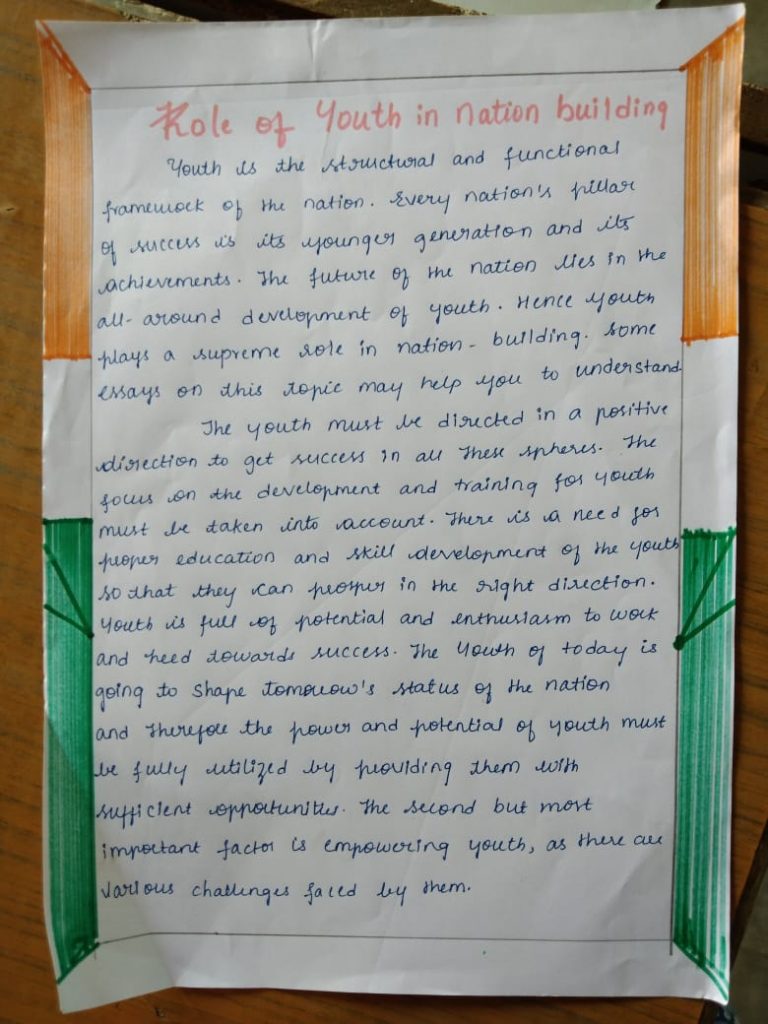 Role of Youth in nation building
Youth is the structural and functional
framework of the nation. Every nation's pillar
of success is its younger generation and its
achievements. The future of the nation lies in the
all-around development of youth. Hence youth
plays a supreme role in nation-building. some
essays on this topic may help you to understand.
The youth must be directed in a positive
direction to get success in all these spheres. The
focus on the development and training for youth
must be taken into account. There is a need for
proper education and skill development of the youth
so that they can prosper in the right direction.
Youth is full of potential and enthusiasm to work
and heed towards success. The Youth of today is
going to shape tomorrow's status of the nation
and therefore the power and potential of youth must
be fully utilized by providing them with
sufficient opportunities. The second but most
important factor is empowering youth, as there are
various challenges faced by them.